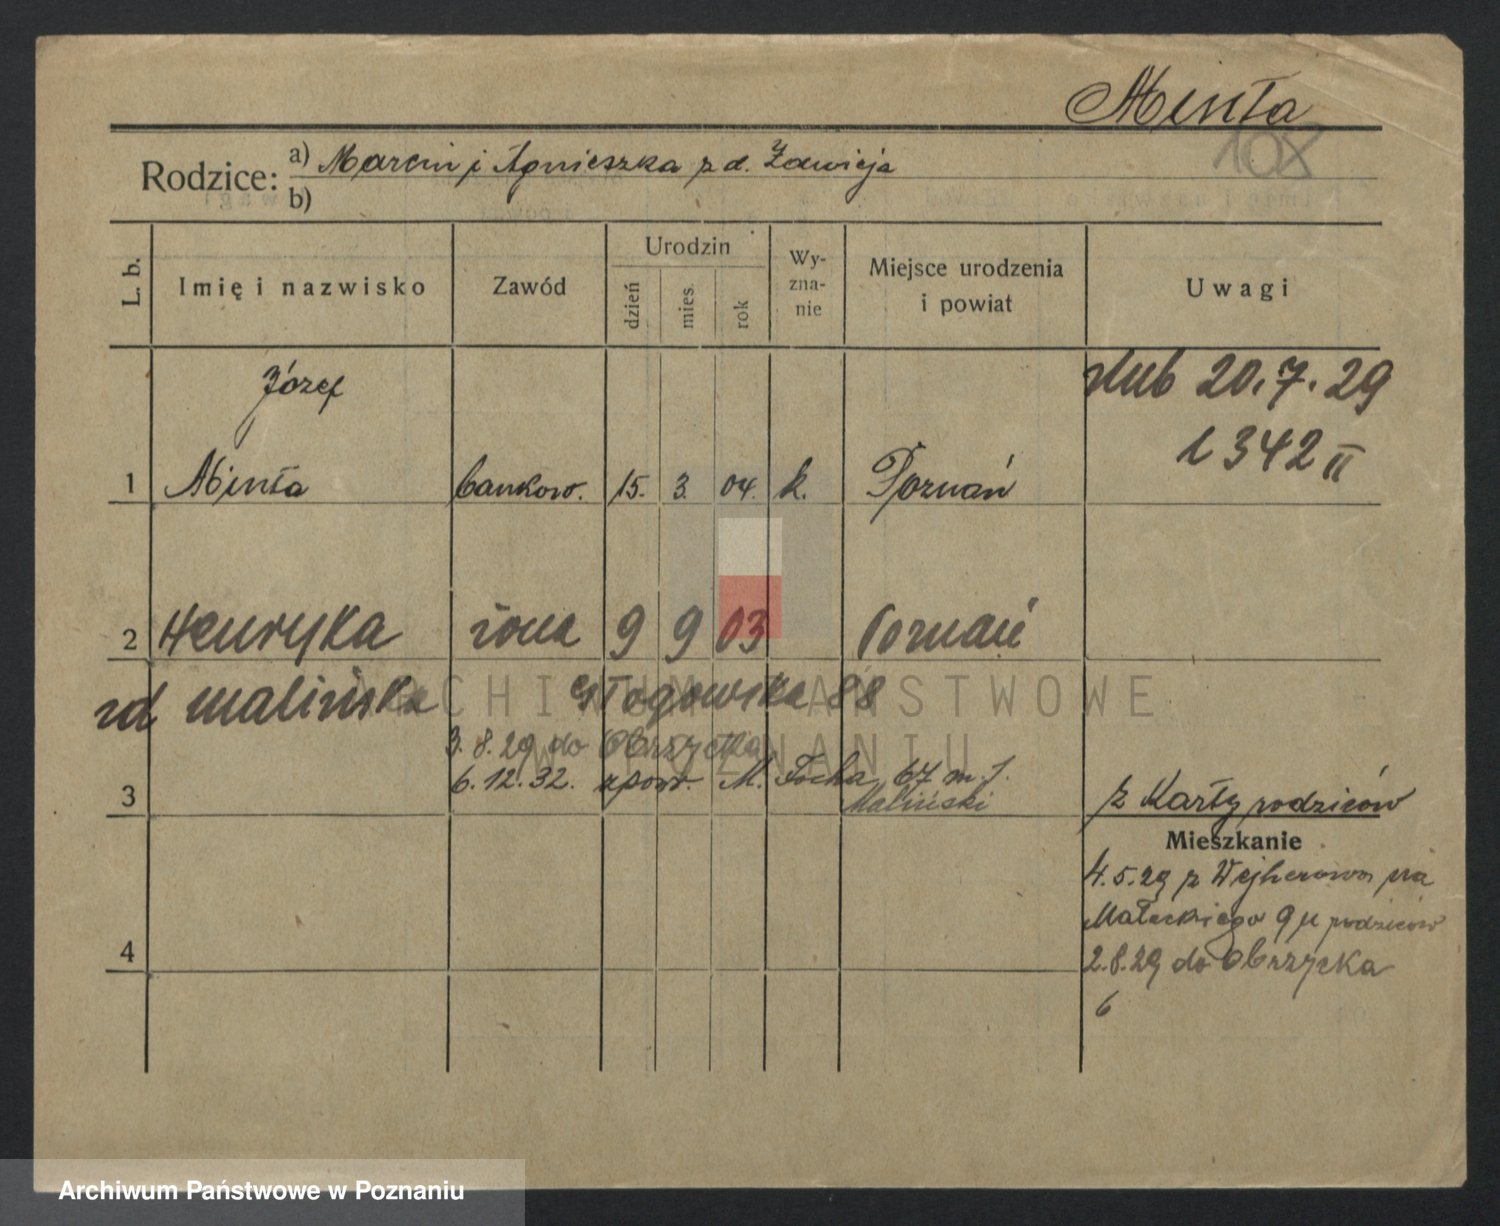 Minta
108
Rodzice: a) Marcin i Agnieszka z d. Zawieja
b)
L. b.
Imię i nazwisko
Zawód
Urodzin
dzień
mies.
rok
Wy-
zna-
nie
Miejsce urodzenia
i powiat
Uwagi
Józef
ślub 20.7.29
1342 II
1 Minta bankow. 15. 3. 04. k. Poznań
2 Henryka żona 9 9 03 Poznań
zd Malińska Głogowska 88
3.8.29 do Obrzycka
6.12.32. zpow. M. Focha 67 m 1.
Maliński
3
z Karty rodziców
Mieszkanie
4.5.29 z Wejherowa na
Małeckiego 9 u rodziców
2.8.29 do Obrzycka
4
6
ARCHIWUM PAŃSTWOWE
W POZNANIU
Archiwum Państwowe w Poznaniu